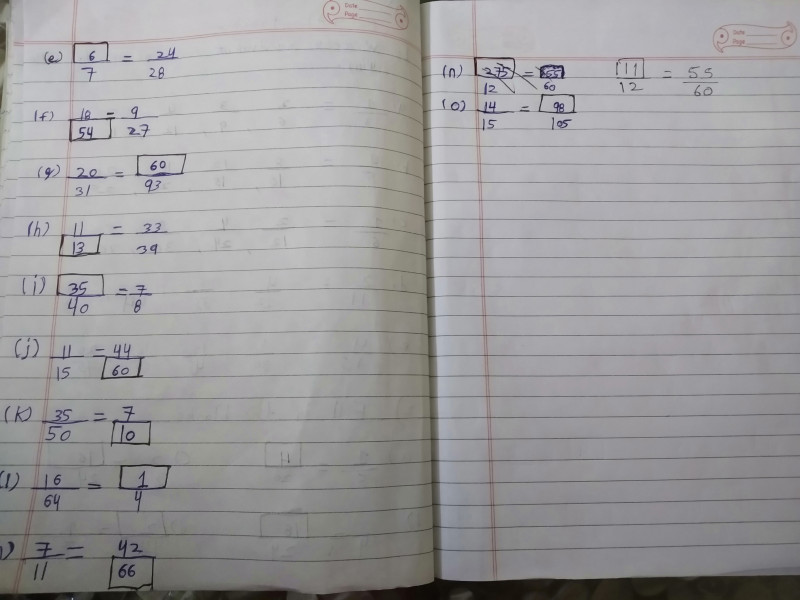 Date
Page
(e) 6/7 = 24/28
(f) 18/54 = 9/27
(g) 20/31 = 60/93
(h) 11/13 = 33/39
(i) 35/40 = 7/8
(j) 11/15 = 44/60
(k) 35/50 = 7/10
(l) 16/64 = 1/4
) 7/11 = 42/66
Date
Page
(n) 275/12 = 55/60 11/12 = 55/60
(o) 14/15 = 98/105